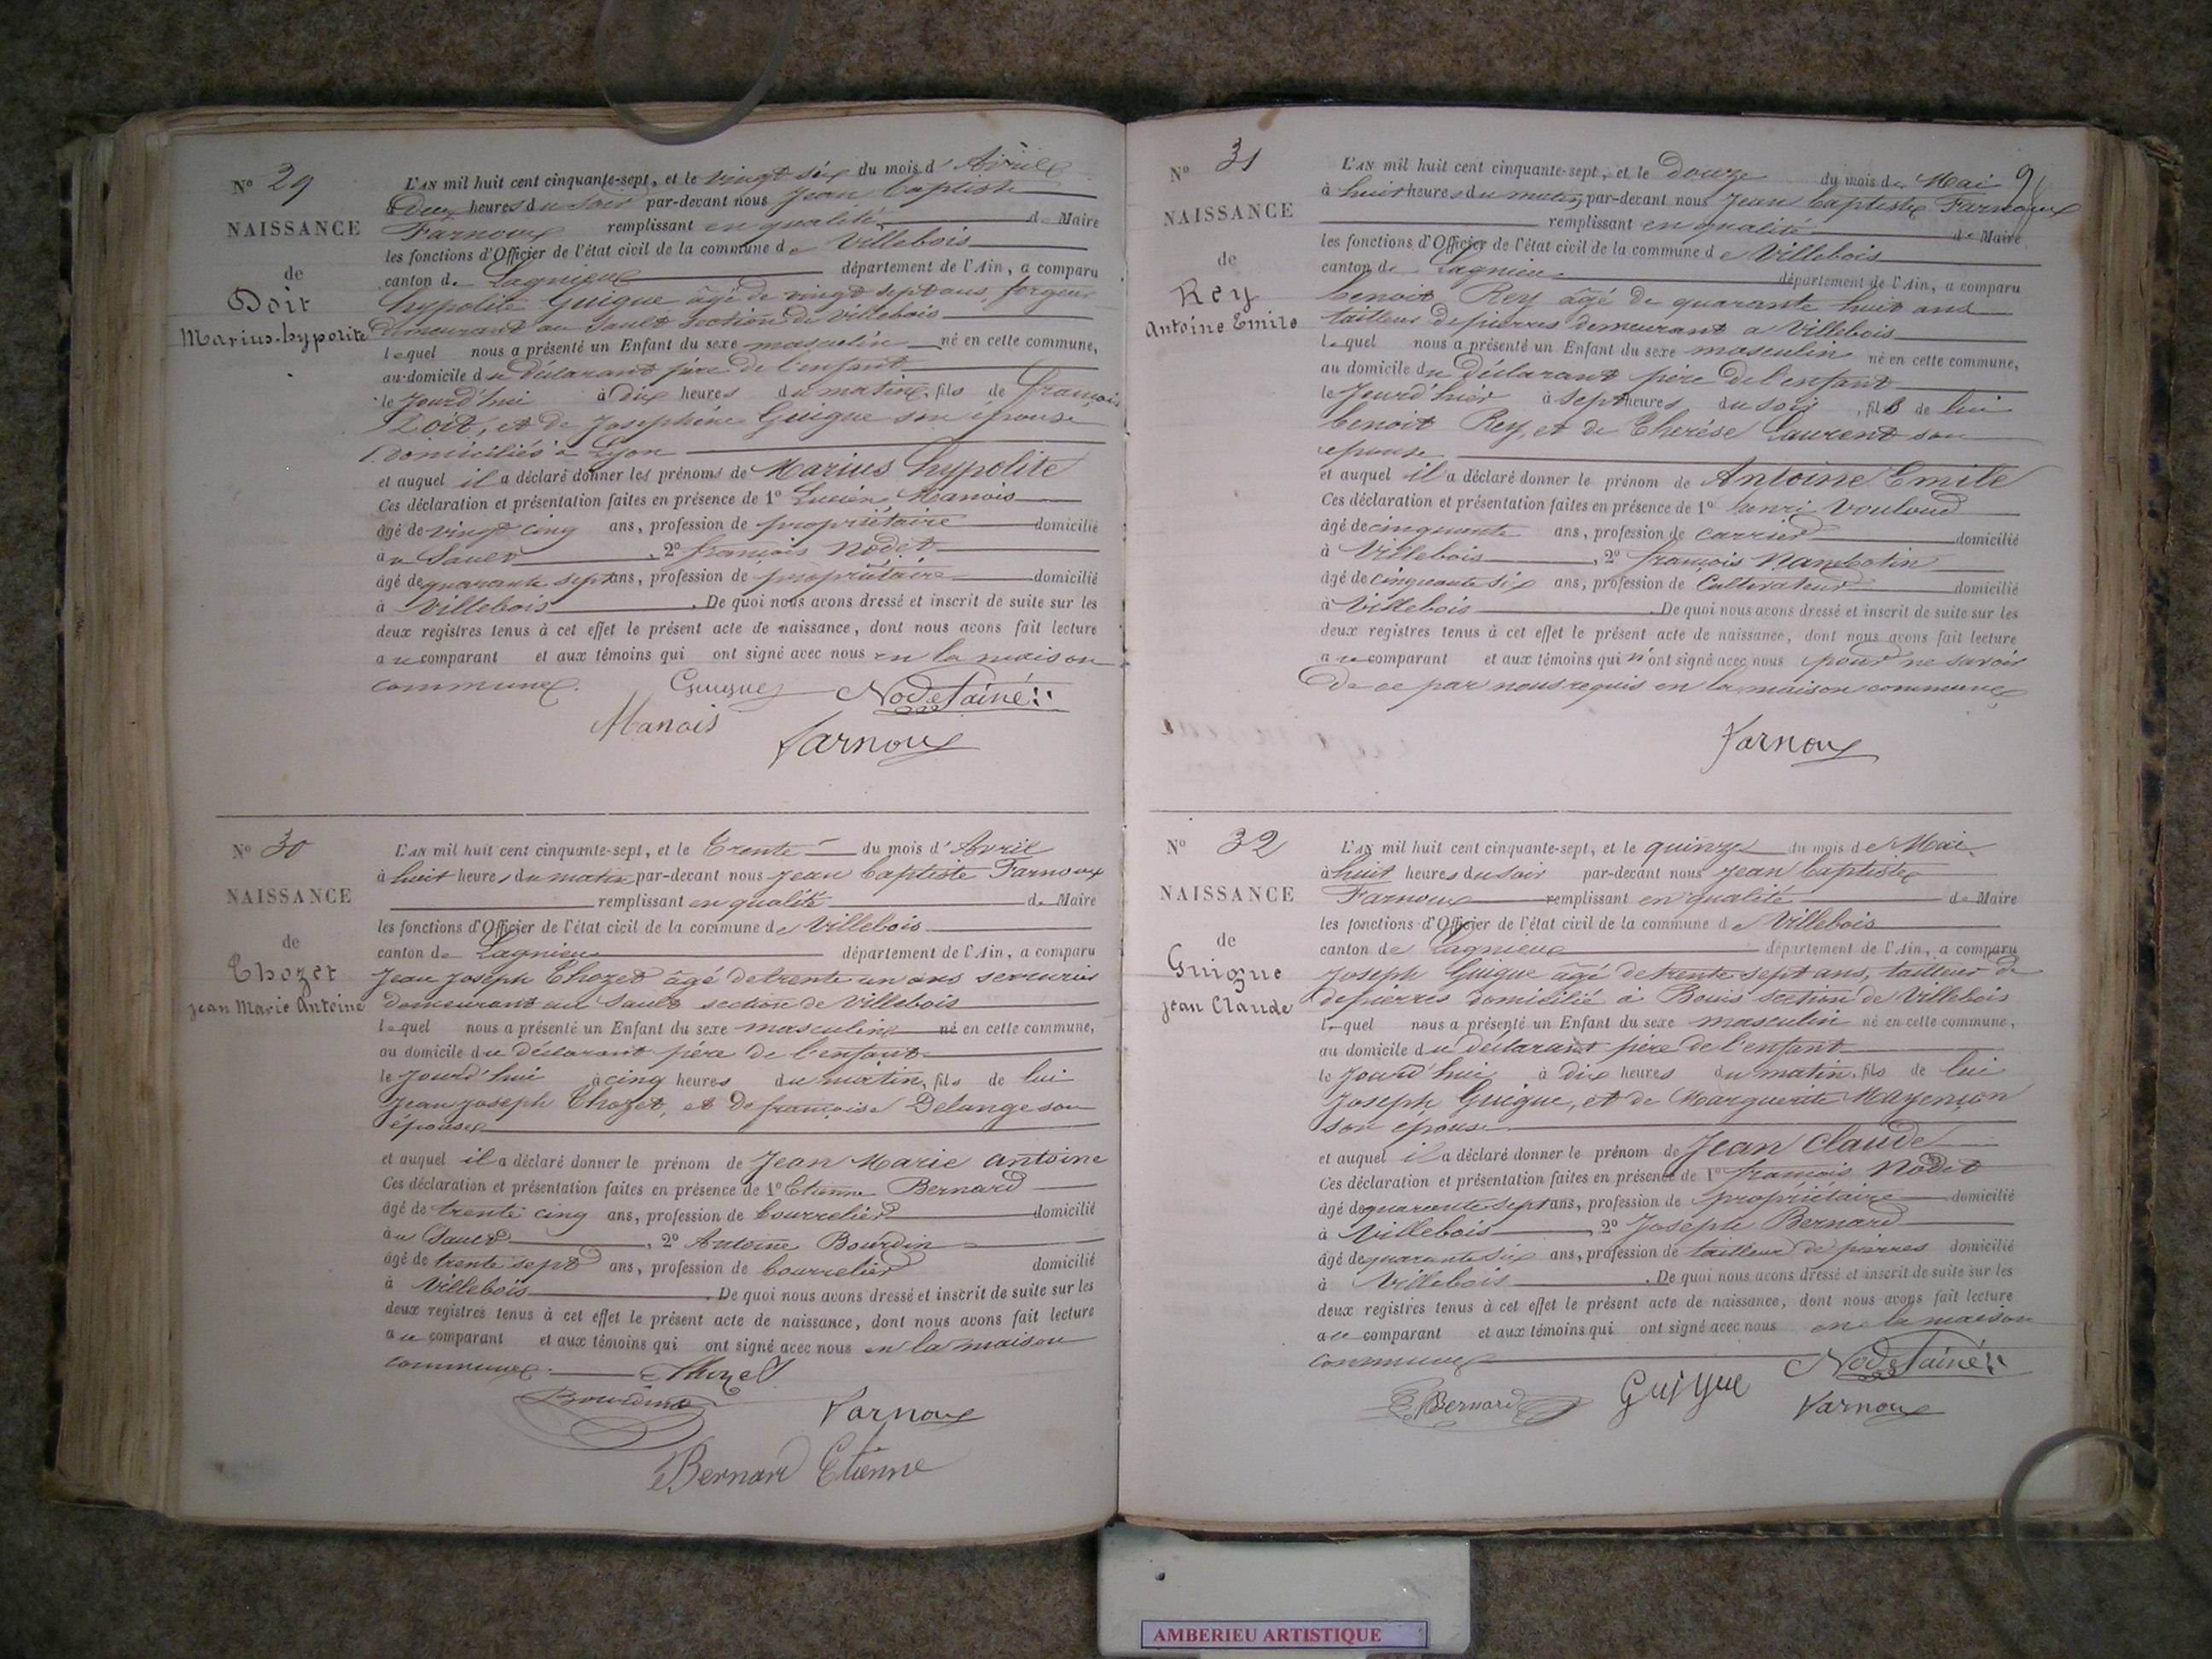 N° 29
NAISSANCE
de
Doit
Marius-hypolite
L'AN mil huit cent cinquante-sept, et le vingt six du mois d'Avril
à Deux heures du soir par-devant nous Jean baptiste
Farnoux remplissant en qualité de Maire
les fonctions d'Officier de l'état civil de la commune de Villebois
canton de Lagnieu département de l'Ain, a comparu
hypolite Guigue âgé de vingt sept ans, forgeur
demeurant au Sault section de Villebois
lequel nous a présenté un Enfant du sexe masculin né en cette commune,
au domicile du déclarant père de l'enfant
le Jourd'hui à dix heures du matin, fils de françois
Doit, et de Josephine Guigue son épouse
domiciliés à Lyon
et auquel il a déclaré donner les prénoms de Marius hypolite
Ces déclaration et présentation faites en présence de 1° Lucien Manois
âgé de vingt cinq ans, profession de propriétaire domicilié
au Sault, 2° françois Nodet
âgé de quarante sept ans, profession de propriétaire domicilié
à Villebois. De quoi nous avons dressé et inscrit de suite sur les
deux registres tenus à cet effet le présent acte de naissance, dont nous avons fait lecture
au comparant et aux témoins qui ont signé avec nous en la maison
commune.
Guigue Nodet ainé
Manois Farnoux
N° 30
NAISSANCE
de
Thozet
jean Marie Antoine
L'AN mil huit cent cinquante-sept, et le Trente du mois d'Avril
à huit heures du matin par-devant nous jean baptiste Farnoux
remplissant en qualité de Maire
les fonctions d'Officier de l'état civil de la commune de Villebois
canton de Lagnieu département de l'Ain, a comparu
Jean Joseph Thozet âgé de trente un ans serrurier
demeurant au Sault section de Villebois
lequel nous a présenté un Enfant du sexe masculin né en cette commune,
au domicile du déclarant père de l'enfant
le Jourd'hui à cinq heures du matin, fils de lui
Jean joseph Thozet, et de françoise Delange son
épouse
et auquel il a déclaré donner le prénom de Jean Marie Antoine
Ces déclaration et présentation faites en présence de 1° Etienne Bernard
âgé de trente cinq ans, profession de bourrelier domicilié
au Sault, 2° Antoine Bourdin
âgé de trente sept ans, profession de bourrelier domicilié
à Villebois. De quoi nous avons dressé et inscrit de suite sur les
deux registres tenus à cet effet le présent acte de naissance, dont nous avons fait lecture
au comparant et aux témoins qui ont signé avec nous en la maison
commune. Thozet
Bourdin Farnoux
Bernard Etienne
N° 31
NAISSANCE
de
Rey
Antoine Emile
L'AN mil huit cent cinquante-sept, et le Douze du mois de Mai
à huit heures du matin par-devant nous Jean baptiste Farnoux
remplissant en qualité de Maire
les fonctions d'Officier de l'état civil de la commune de Villebois
canton de Lagnieu département de l'Ain, a comparu
benoit Rey âgé de quarante huit ans
tailleur de pierres demeurant a Villebois
lequel nous a présenté un Enfant du sexe masculin né en cette commune,
au domicile du Déclarant père de l'enfant
le Jourd'hier à sept heures du soir, fils de lui
benoit Rey, et de Therèse Laurent son
epouse
et auquel il a déclaré donner le prénom de Antoine Emile
Ces déclaration et présentation faites en présence de 1° henri Vouloud
âgé de cinquante ans, profession de carrier domicilié
à Villebois, 2° françois Nambotin
âgé de cinquante six ans, profession de Cultivateur domicilié
à Villebois. De quoi nous avons dressé et inscrit de suite sur les
deux registres tenus à cet effet le présent acte de naissance, dont nous avons fait lecture
au comparant et aux témoins qui n'ont signé avec nous pour ne savoir
De ce par nous requis en la maison commune
Farnoux
N° 32
NAISSANCE
de
Guigue
jean Claude
L'AN mil huit cent cinquante-sept, et le quinze du mois de Mai
à huit heures du soir par-devant nous jean baptiste
Farnoux remplissant en qualité de Maire
les fonctions d'Officier de l'état civil de la commune de Villebois
canton de Lagnieu département de l'Ain, a comparu
Joseph Guigue âgé de trente sept ans, tailleur de
de pierres domicilié à Bouis section de Villebois
lequel nous a présenté un Enfant du sexe masculin né en cette commune,
au domicile du déclarant père de l'enfant
le Jourd'hui à dix heures du matin, fils de lui
Joseph Guigue, et de Marguerite Mazençon
son épouse
et auquel il a déclaré donner le prénom de Jean Claude
Ces déclaration et présentation faites en présence de 1° françois Nodet
âgé de quarante sept ans, profession de propriétaire domicilié
à Villebois 2° Joseph Bernard
âgé de quarante six ans, profession de tailleur de pierres domicilié
à Villebois. De quoi nous avons dressé et inscrit de suite sur les
deux registres tenus à cet effet le présent acte de naissance, dont nous avons fait lecture
au comparant et aux témoins qui ont signé avec nous en la maison
commune Nodet ainé
Bernard Guigue Farnoux
AMBERIEU ARTISTIQUE